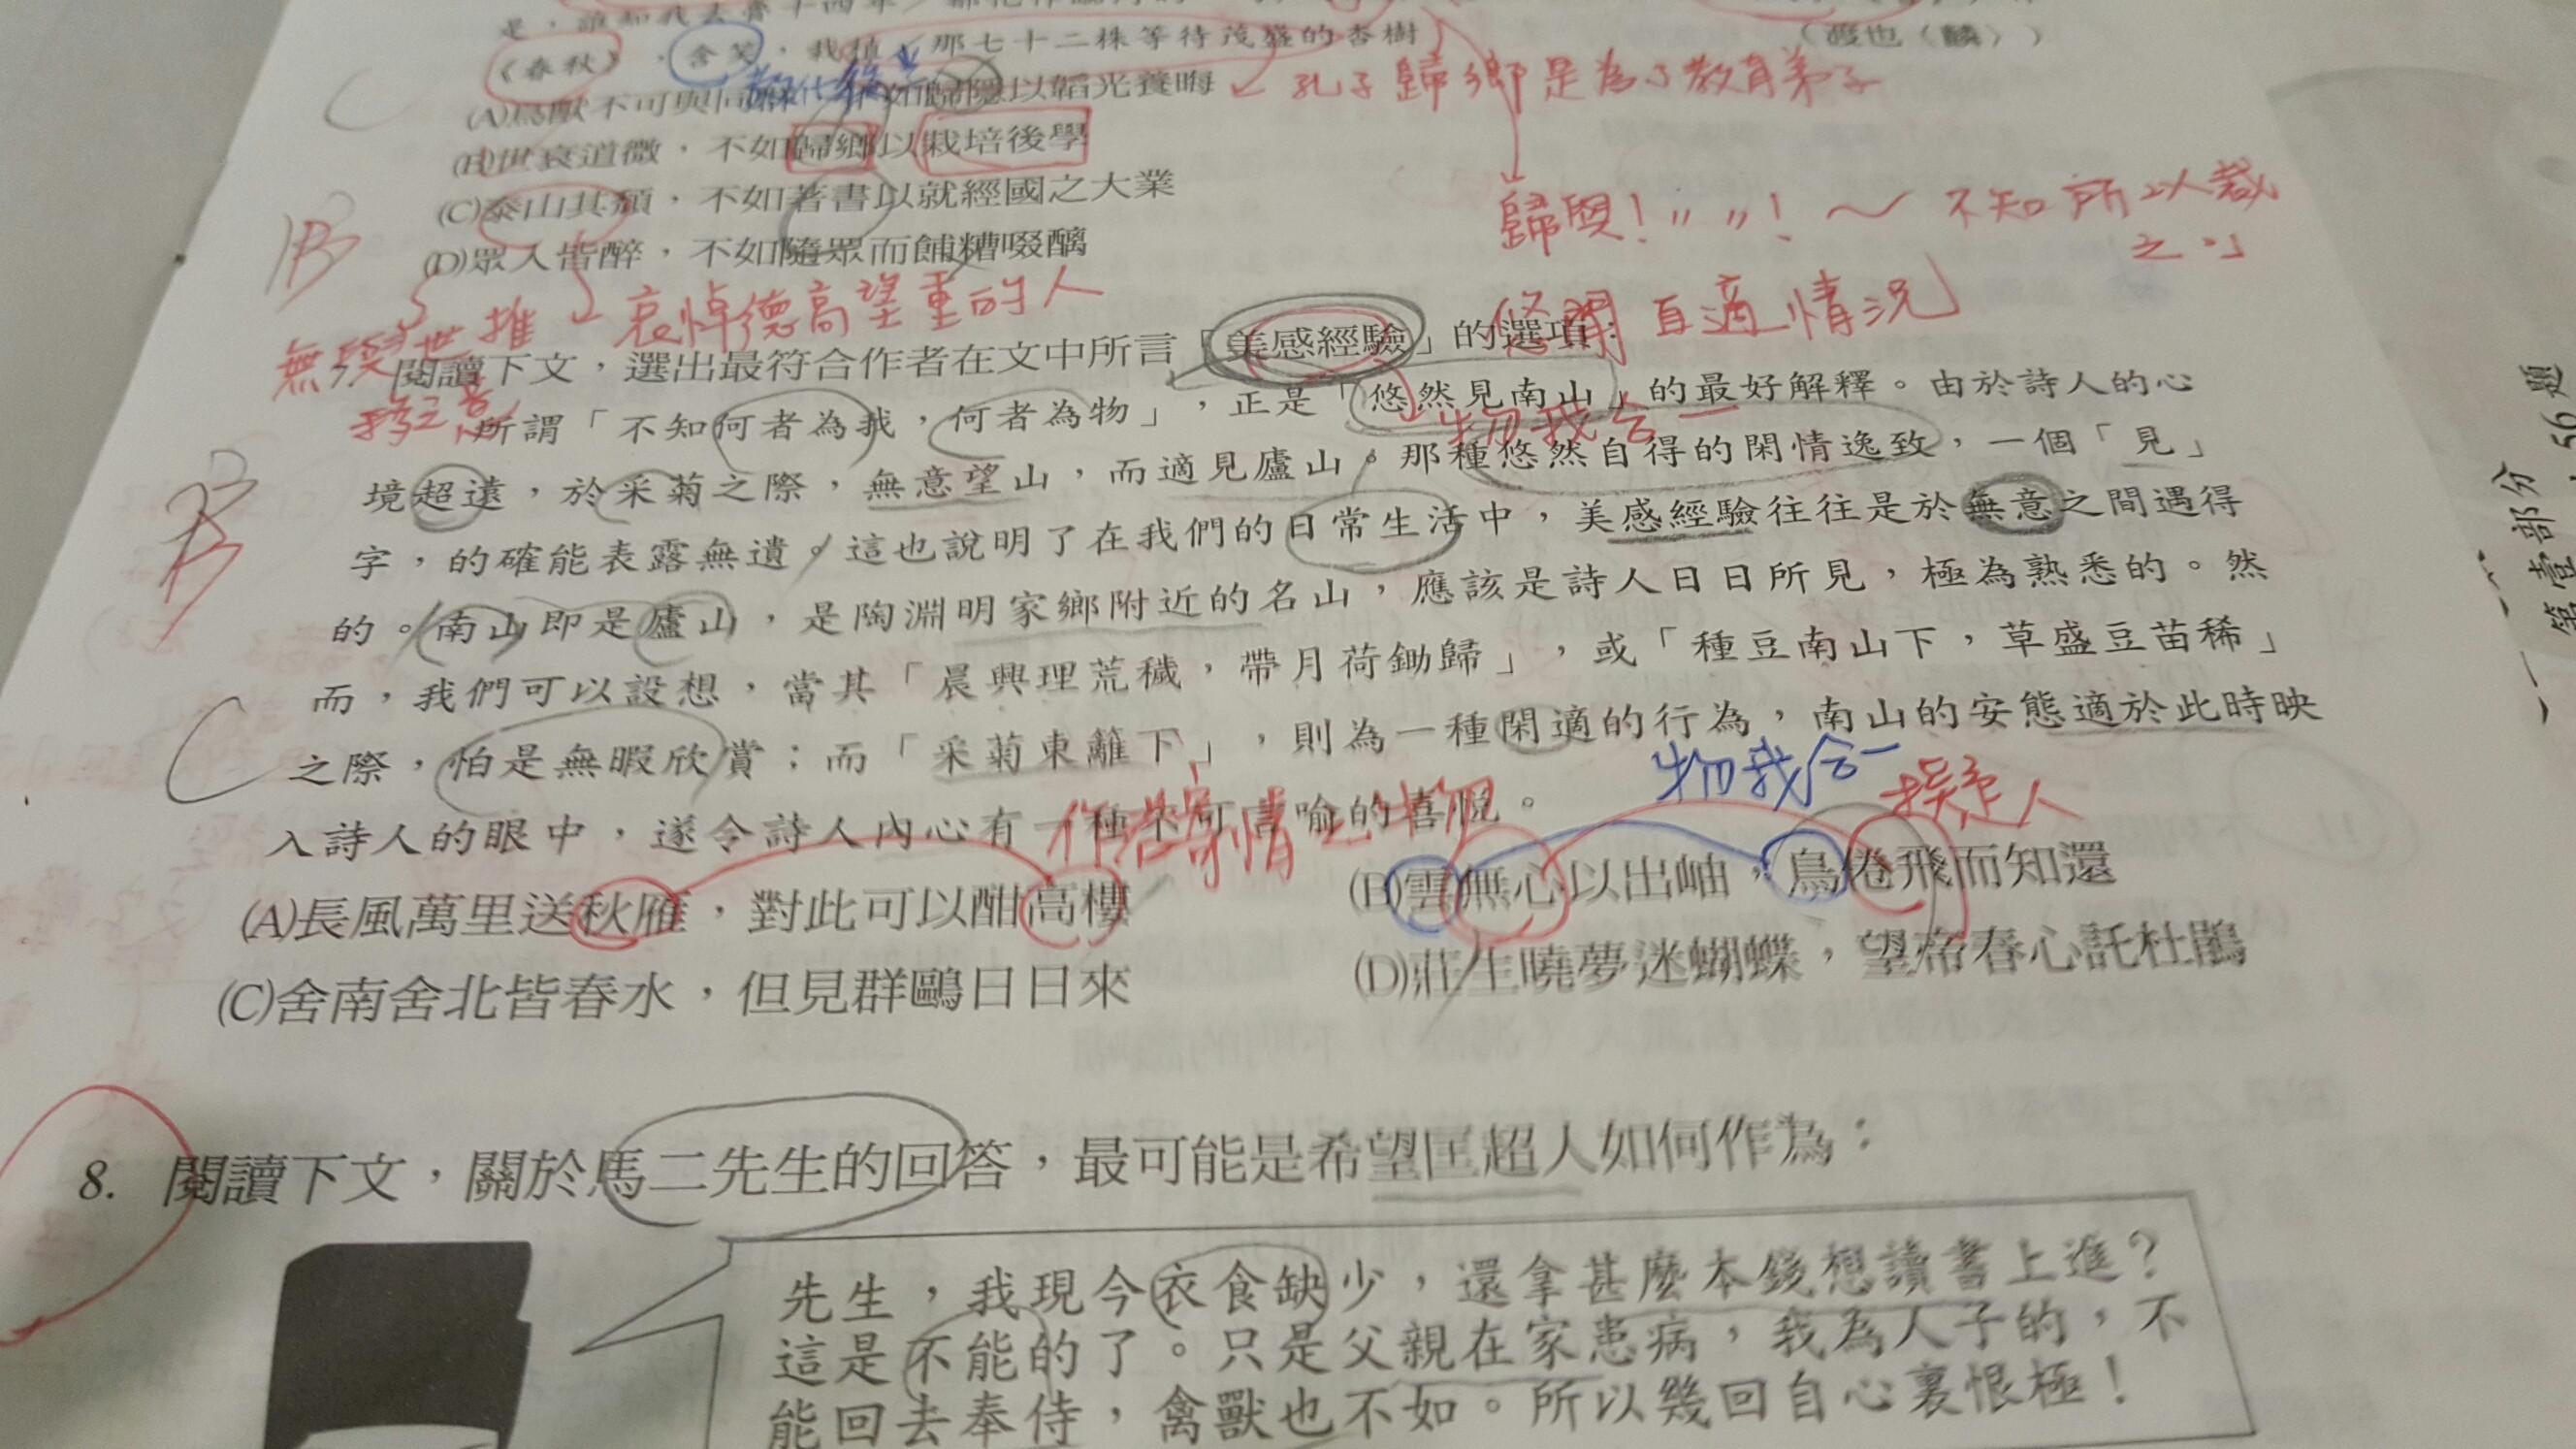 《春秋》,含笑,我植 那七十二株等待茂盛的杏樹
(A)鳥獸不可與同群 不如歸隱以韜光養晦
孔子歸鄉是為了教育弟子
(B)世衰道微,不如歸鄉以栽培後學
(C)泰山其頹,不如著書以就經國之大業
歸與!〃〃!~不知所以裁之。」
B
(D)眾人皆醉,不如隨眾而餔糟啜醨
哀悼德高望重的人
悠閒自適情況
閱讀下文,選出最符合作者在文中所言「美感經驗」的選項:
所謂「不知何者為我,何者為物」,正是「悠然見南山」的最好解釋。由於詩人的心
物我合一
境超遠,於采菊之際,無意望山,而適見廬山。那種悠然自得的閑情逸致,一個「見」
B
字,的確能表露無遺。這也說明了在我們的日常生活中,美感經驗往往是於無意之間遇得
的。南山即是廬山,是陶淵明家鄉附近的名山,應該是詩人日日所見,極為熟悉的。然
而,我們可以設想,當其「晨興理荒穢,帶月荷鋤歸」,或「種豆南山下,草盛豆苗稀」
之際,怕是無暇欣賞;而「采菊東籬下」,則為一種閑適的行為,南山的安態適於此時映
C
物我合一
入詩人的眼中,遂令詩人內心有一種不可言喻的喜悅。
(A)長風萬里送秋雁,對此可以酣高樓
(B)雲無心以出岫,鳥倦飛而知還
(C)舍南舍北皆春水,但見群鷗日日來
(D)莊生曉夢迷蝴蝶,望帝春心託杜鵑
8. 閱讀下文,關於馬二先生的回答,最可能是希望匡超人如何作為:
先生,我現今衣食缺少,還拿甚麼本錢想讀書上進?
這是不能的了。只是父親在家患病,我為人子的,不
能回去奉侍,禽獸也不如。所以幾回自心裏恨極!
第壹部分
56題